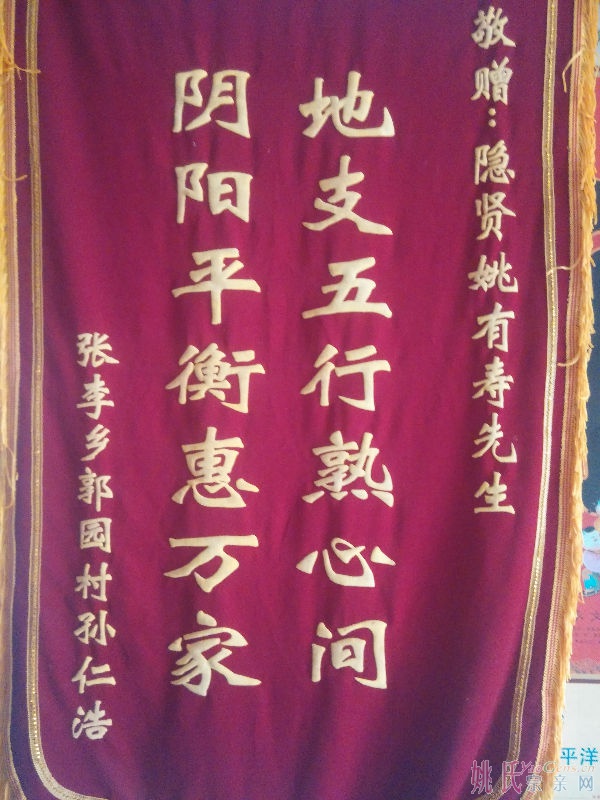 敬赠：隐贤姚有寿先生
地支五行熟心间
阴阳平衡惠万家
张李乡郭园村孙仁浩
平洋
姚氏宗亲网